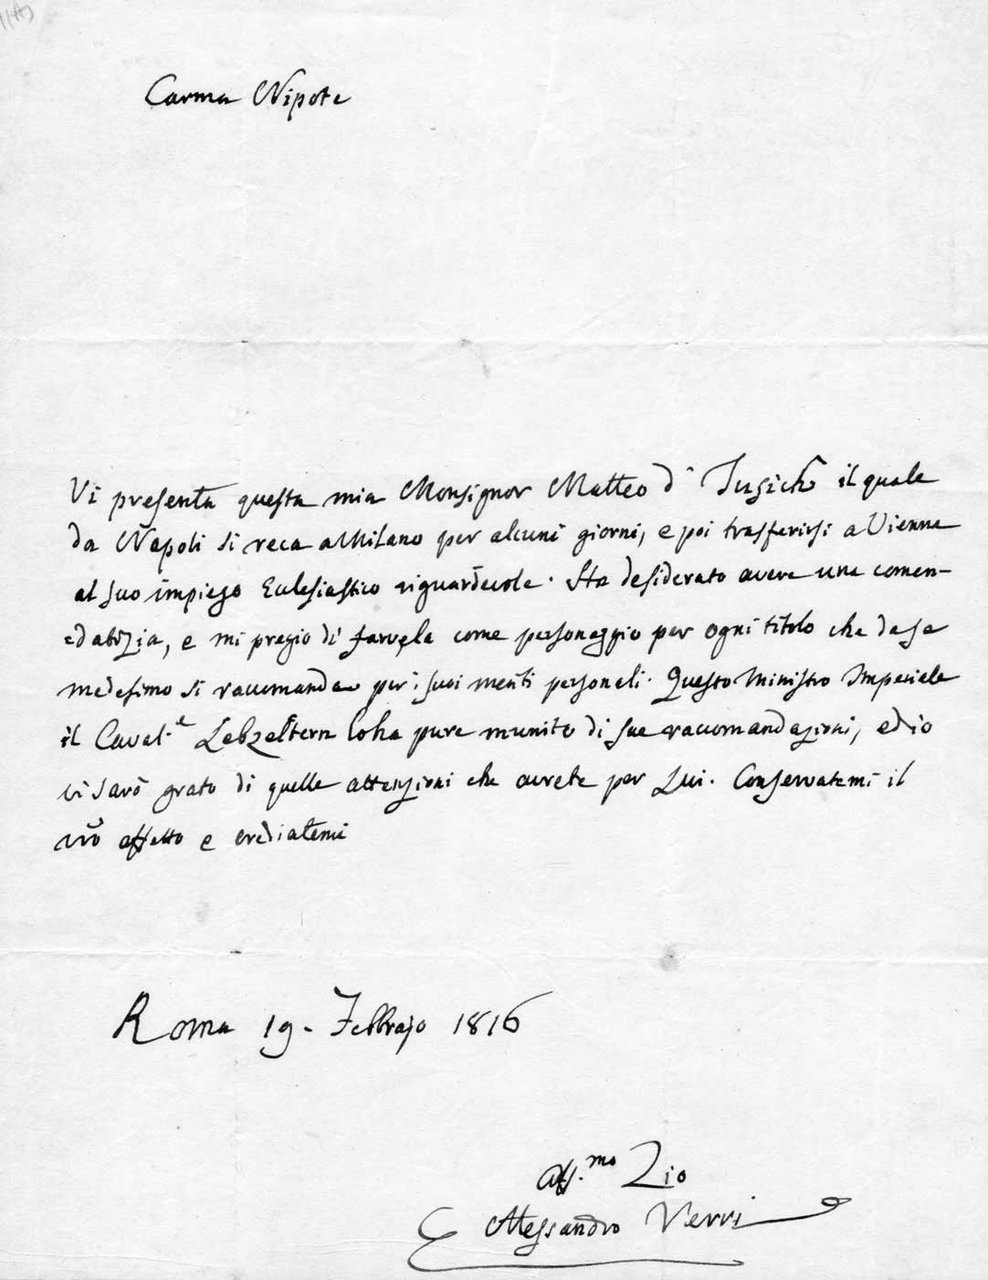 Carma Nipote
Vi presenta questa mia Monsignor Matteo d' Jusich il quale
da Napoli si reca a Milano per alcuni giorni, e poi trasferirsi a Vienna
al suo impiego Eclesiastico riguardevole. Ha desiderato avere una comen-
datizia, e mi pregio di farvela come personaggio per ogni titolo che da se
medesimo si raccomanda per i suoi meriti personali. Questo Ministro Imperiale
il Caval.e Lebzeltern lo ha pure munito di sue raccomandazioni, ed io
vi sarò grato di quelle attenzioni che avrete per Lui. Conservatemi il
vrõ affetto e crediatemi
Roma 19. Febbrajo 1816
Aff.mo Zio
Alessandro Verri